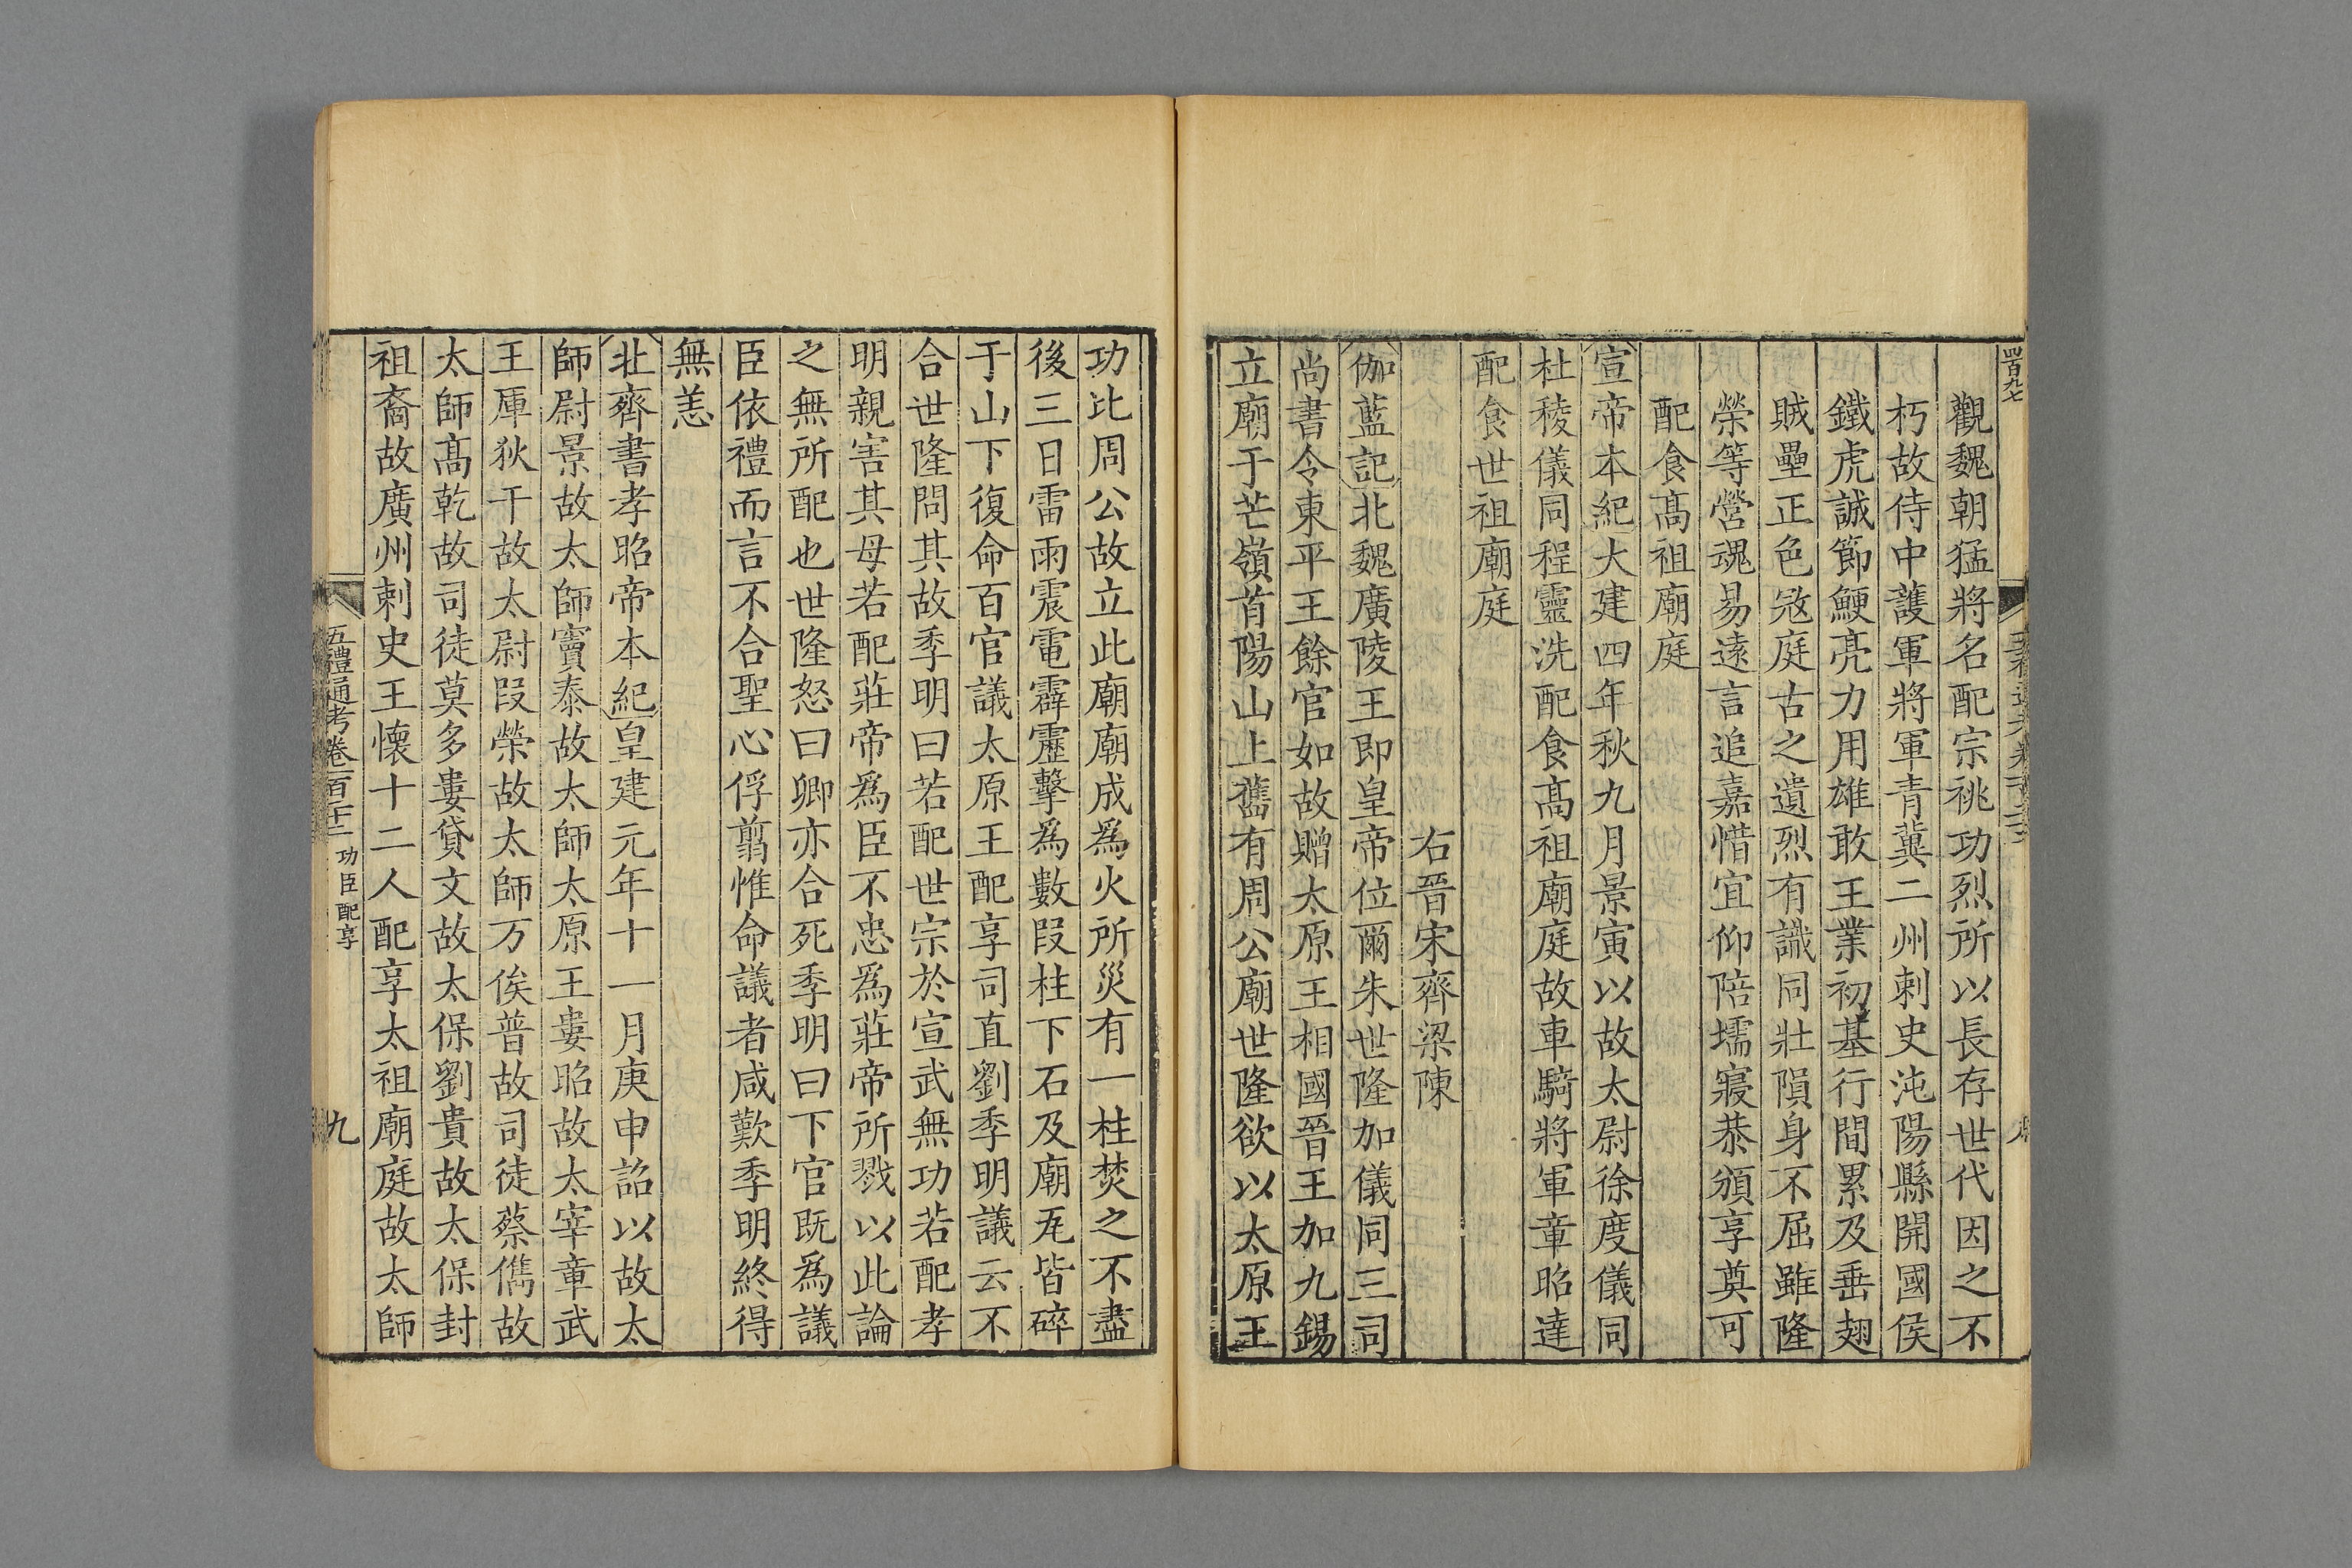 觀魏朝猛將名配宗祧功烈所以長存世代因之不
朽故侍中護軍將軍青冀二州刺史沌陽縣開國侯
鐵虎誠節鯁亮力用雄敢王業初基行間累及垂翅
賊壘正色寇庭古之遺烈有識同壯隕身不屈雖隆
榮等營魂易遠言追嘉惜宜仰陪壖寢恭頒享奠可
配食髙祖廟庭
宣帝本紀大建四年秋九月景寅以故太尉徐度儀同
杜稜儀同程靈洗配食髙祖廟庭故車騎將軍章昭達
配食世祖廟庭
右晉宋齊梁陳
伽藍記北魏廣陵王即皇帝位爾朱世隆加儀同三司
尚書令東平王餘官如故贈太原王相國晉王加九錫
立廟于芒嶺首陽山上舊有周公廟世隆欲以太原王
功比周公故立此廟廟成爲火所災有一柱焚之不盡
後三日雷雨震電霹靂擊爲數段柱下石及廟瓦皆碎
于山下復命百官議太原王配享司直劉季明議云不
合世隆問其故季明曰若配世宗於宣武無功若配孝
明親害其母若配莊帝爲臣不忠爲莊帝所戮以此論
之無所配也世隆怒曰卿亦合死季明曰下官既爲議
臣依禮而言不合聖心俘翦惟命議者咸歎季明終得
無恙
北齊書孝昭帝本紀皇建元年十一月庚申詔以故太
師尉景故太師竇泰故太師太原王婁昭故太宰章武
王厙狄干故太尉段榮故太師万俟普故司徒蔡儁故
太師髙乾故司徒莫多婁貸文故太保劉貴故太保封
祖裔故廣州刺史王懷十二人配享太祖廟庭故太師
五禮通考卷一百二十二 功臣配享
九